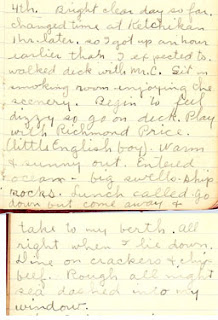 4th. Bright clear day so far.
changed time at Ketchikan
1 hr. later. so I got up an hour
earlier than I expected to.
walked deck with Mr. C. Sit in
smoking room enjoying the
scenery. Begin to feel
dizzy so go on deck. Play
with Richmond Price.
(little English boy). Warm
& sunny out. Entered
ocean - big swells. ship
rocks. Lunch called. go
down but come away &
take to my berth. all
right when I lie down.
Dine on crackers & chip
beef. Rough all night
sea dashed into my
window.